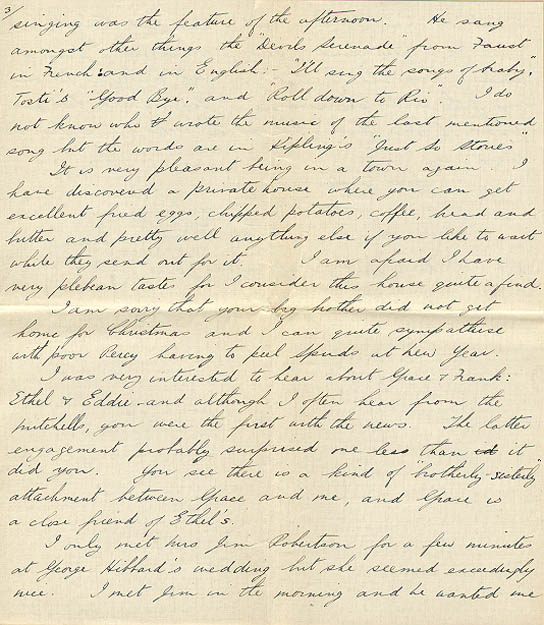 3/
singing was the feature of the afternoon. He sang
amongst other things the "Devils Serenade" from Faust
in French: and in English:- "I'll sing thee songs of Araby",
Tosti's "Good Bye", and "Roll down to Rio". I do
not know who wrote the music of the last mentioned
song but the words are in Kipling's "Just So Stories"
It is very pleasant being in a town again. I
have discovered a private house where you can get
excellent fried eggs, chipped potatoes, coffee, bread and
butter and pretty well anything else if you like to wait
while they send out for it. I am afraid I have
very plebean tastes for I consider this house quite a find.
I am sorry that your big brother did not get
home for Christmas and I can quite sympathise
with poor Percy having to peel spuds at New Year.
I was very interested to hear about Grace & Frank:
Ethel & Eddie - and although I often hear from the
Mitchells, you were the first with the news. The latter
engagement probably surprised me less than it
did you. You see there is a kind of "brotherly-sisterly"
attachment between Grace and me, and Grace is
a close friend of Ethel's.
I only met Mrs Jim Robertson for a few minutes
at George Hibbard's wedding but she seemed exceedingly
nice. I met Jim in the morning and he wanted me